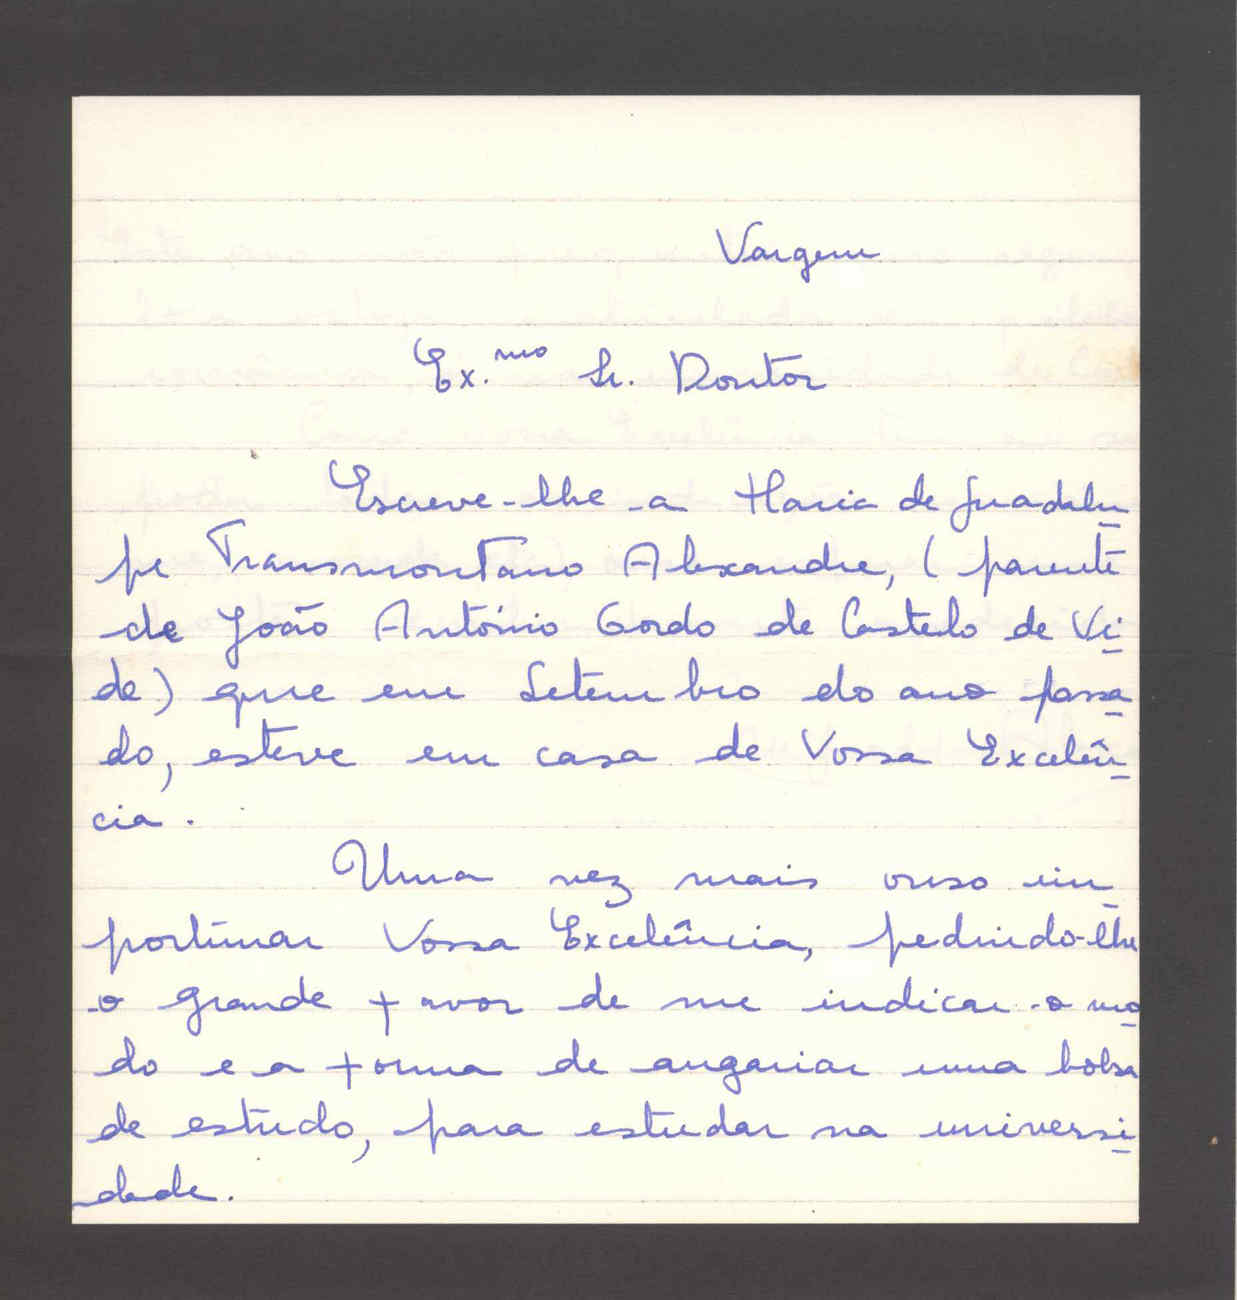 Vargem
Ex.mo Sr. Doutor
Escreve-lhe a Maria de Guadalu
pe Transmontano Alexandre, (parente
de João António Gordo de Castelo de Vi
de) que em Setembro do ano passa
do, esteve em casa de Vossa Excelên
cia.
Uma vez mais ouso im
portunar Vossa Excelência, pedindo-lhe
o grande favor de me indicar o mo
do e a forma de angariar uma bolsa
de estudo, para estudar na universi
dade.